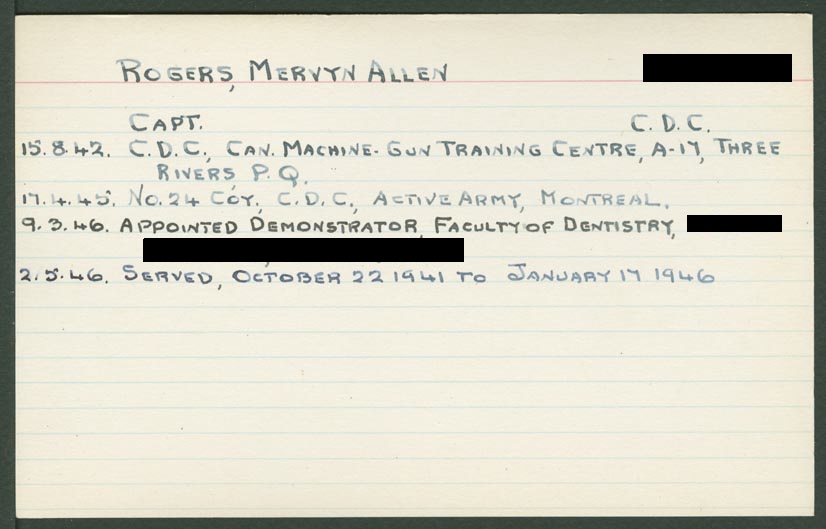 ROGERS, MERVYN ALLEN
CAPT. C.D.C.
15.8.42. C.D.C., CAN. MACHINE-GUN TRAINING CENTRE, A-17, THREE
RIVERS, P.Q.
17.4.45. NO. 24 COY., C.D.C., ACTIVE ARMY, MONTREAL.
9.3.46. APPOINTED DEMONSTRATOR, FACULTY OF DENTISTRY,
2.5.46. SERVED, OCTOBER 22 1941 TO JANUARY 17 1946